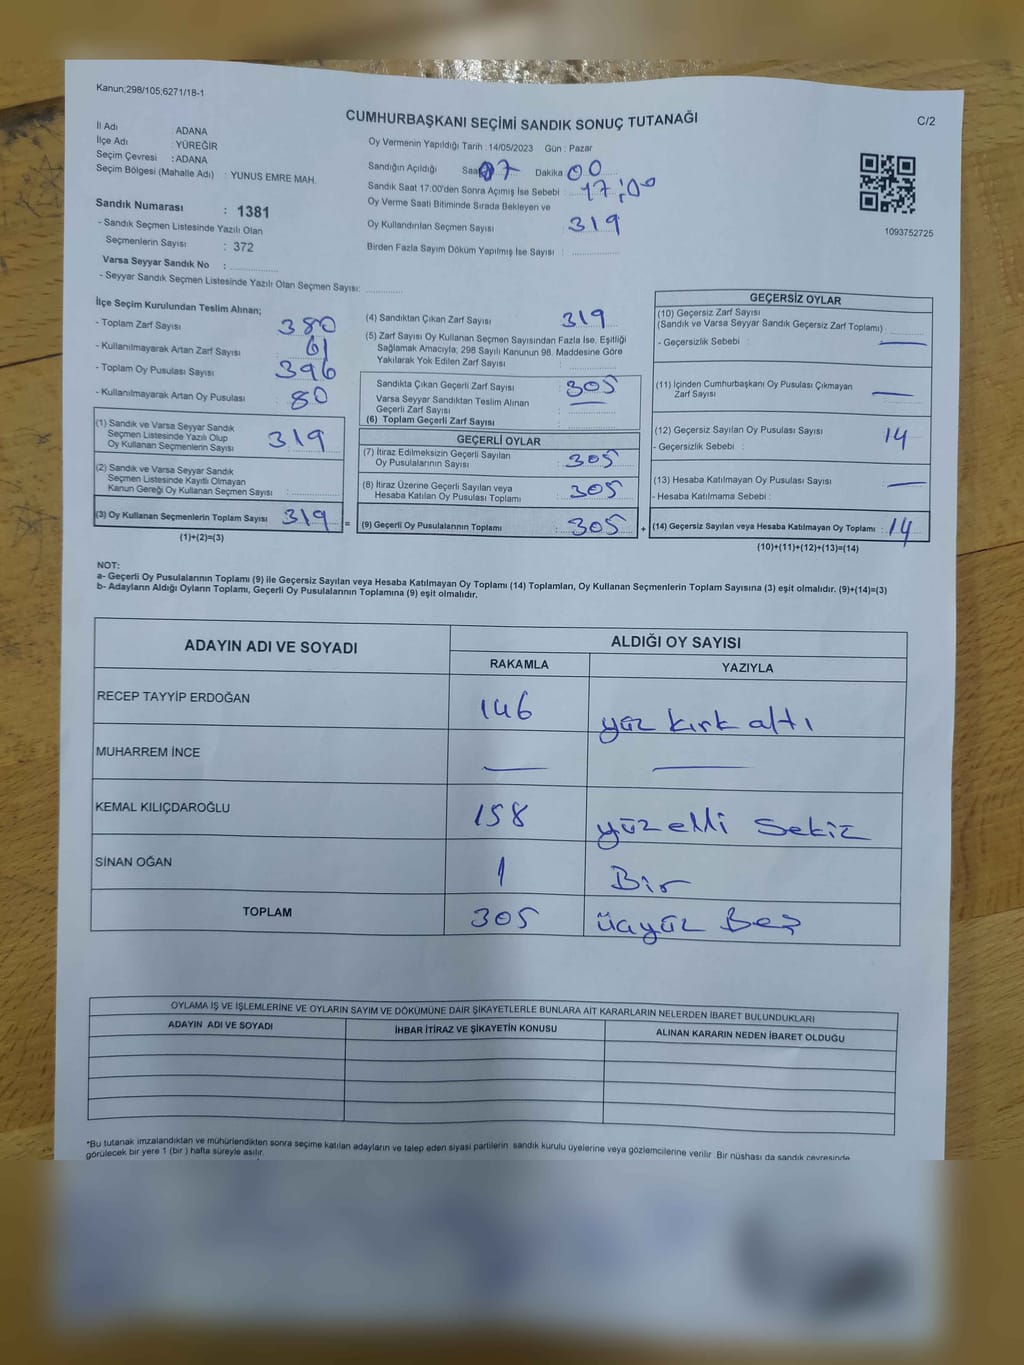 Kanun;298/105,6271/18-1
CUMHURBAŞKANI SEÇİMİ SANDIK SONUÇ TUTANAĞI
C/2
İl Adı : ADANA
İlçe Adı : YÜREĞİR
Seçim Çevresi : ADANA
Seçim Bölgesi (Mahalle Adı) : YUNUS EMRE MAH.
Sandık Numarası : 1381
- Sandık Seçmen Listesinde Yazılı Olan
Seçmenlerin Sayısı : 372
Varsa Seyyar Sandık No :
- Seyyar Sandık Seçmen Listesinde Yazılı Olan Seçmen Sayısı:
Oy Vermenin Yapıldığı Tarih : 14/05/2023 Gün : Pazar
Sandığın Açıldığı Saat 07 Dakika 00
Sandık Saat 17:00'den Sonra Açımış İse Sebebi : 17:00
Oy Verme Saati Bitiminde Sırada Bekleyen ve
Oy Kullandırılan Seçmen Sayısı : 319
Birden Fazla Sayım Döküm Yapılmış İse Sayısı :
1093752725
İlçe Seçim Kurulundan Teslim Alınan;
- Toplam Zarf Sayısı : 380
- Kullanılmayarak Artan Zarf Sayısı : 61
- Toplam Oy Pusulası Sayısı : 396
- Kullanılmayarak Artan Oy Pusulası : 80
(1) Sandık ve Varsa Seyyar Sandık
Seçmen Listesinde Yazılı Olup
Oy Kullanan Seçmenlerin Sayısı : 319
(2) Sandık ve Varsa Seyyar Sandık
Seçmen Listesinde Kayıtlı Olmayan
Kanun Gereği Oy Kullanan Seçmen Sayısı :
(3) Oy Kullanan Seçmenlerin Toplam Sayısı : 319 =
(1)+(2)=(3)
(4) Sandıktan Çıkan Zarf Sayısı : 319
(5) Zarf Sayısı Oy Kullanan Seçmen Sayısından Fazla İse, Eşitliği
Sağlamak Amacıyla, 298 Sayılı Kanunun 98. Maddesine Göre
Yakılarak Yok Edilen Zarf Sayısı :
Sandıkta Çıkan Geçerli Zarf Sayısı : 305
Varsa Seyyar Sandıktan Teslim Alınan
Geçerli Zarf Sayısı : —
(6) Toplam Geçerli Zarf Sayısı :
GEÇERLİ OYLAR
(7) İtiraz Edilmeksizin Geçerli Sayılan
Oy Pusulalarının Sayısı : 305
(8) İtiraz Üzerine Geçerli Sayılan veya
Hesaba Katılan Oy Pusulası Toplamı : 305
(9) Geçerli Oy Pusulalarının Toplamı : 305 +
GEÇERSİZ OYLAR
(10) Geçersiz Zarf Sayısı
(Sandık ve Varsa Seyyar Sandık Geçersiz Zarf Toplamı)
- Geçersizlik Sebebi : —
(11) İçinden Cumhurbaşkanı Oy Pusulası Çıkmayan
Zarf Sayısı : —
(12) Geçersiz Sayılan Oy Pusulası Sayısı : 14
- Geçersizlik Sebebi :
(13) Hesaba Katılmayan Oy Pusulası Sayısı : —
- Hesaba Katılmama Sebebi :
(14) Geçersiz Sayılan veya Hesaba Katılmayan Oy Toplamı : 14
(10)+(11)+(12)+(13)=(14)
NOT:
a- Geçerli Oy Pusulalarının Toplamı (9) ile Geçersiz Sayılan veya Hesaba Katılmayan Oy Toplamı (14) Toplamları, Oy Kullanan Seçmenlerin Toplam Sayısına (3) eşit olmalıdır. (9)+(14)=(3)
b- Adayların Aldığı Oyların Toplamı, Geçerli Oy Pusulalarının Toplamına (9) eşit olmalıdır.
ADAYIN ADI VE SOYADI ALDIĞI OY SAYISI
RAKAMLA YAZIYLA
RECEP TAYYİP ERDOĞAN 146 yüz kırk altı
MUHARREM İNCE — —
KEMAL KILIÇDAROĞLU 158 yüz elli sekiz
SİNAN OĞAN 1 Bir
TOPLAM 305 üçyüz Beş
OYLAMA İŞ VE İŞLEMLERİNE VE OYLARIN SAYIM VE DÖKÜMÜNE DAİR ŞİKAYETLERLE BUNLARA AİT KARARLARIN NELERDEN İBARET BULUNDUKLARI
ADAYIN ADI VE SOYADI İHBAR İTİRAZ VE ŞİKAYETİN KONUSU ALINAN KARARIN NEDEN İBARET OLDUĞU
*Bu tutanak imzalandıktan ve mühürlendikten sonra seçime katılan adayların ve talep eden siyasi partilerin sandık kurulu üyelerine veya gözlemcilerine verilir. Bir nüshası da sandık çevresinde
görülecek bir yere 1 (bir ) hafta süreyle asılır.